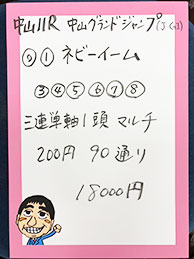 中山11R 中山グランドジャンプ(J・GI)
◎① ネビーイーム
③④⑤⑥⑦⑧
三連単軸1頭マルチ
200円 90通り
18000円